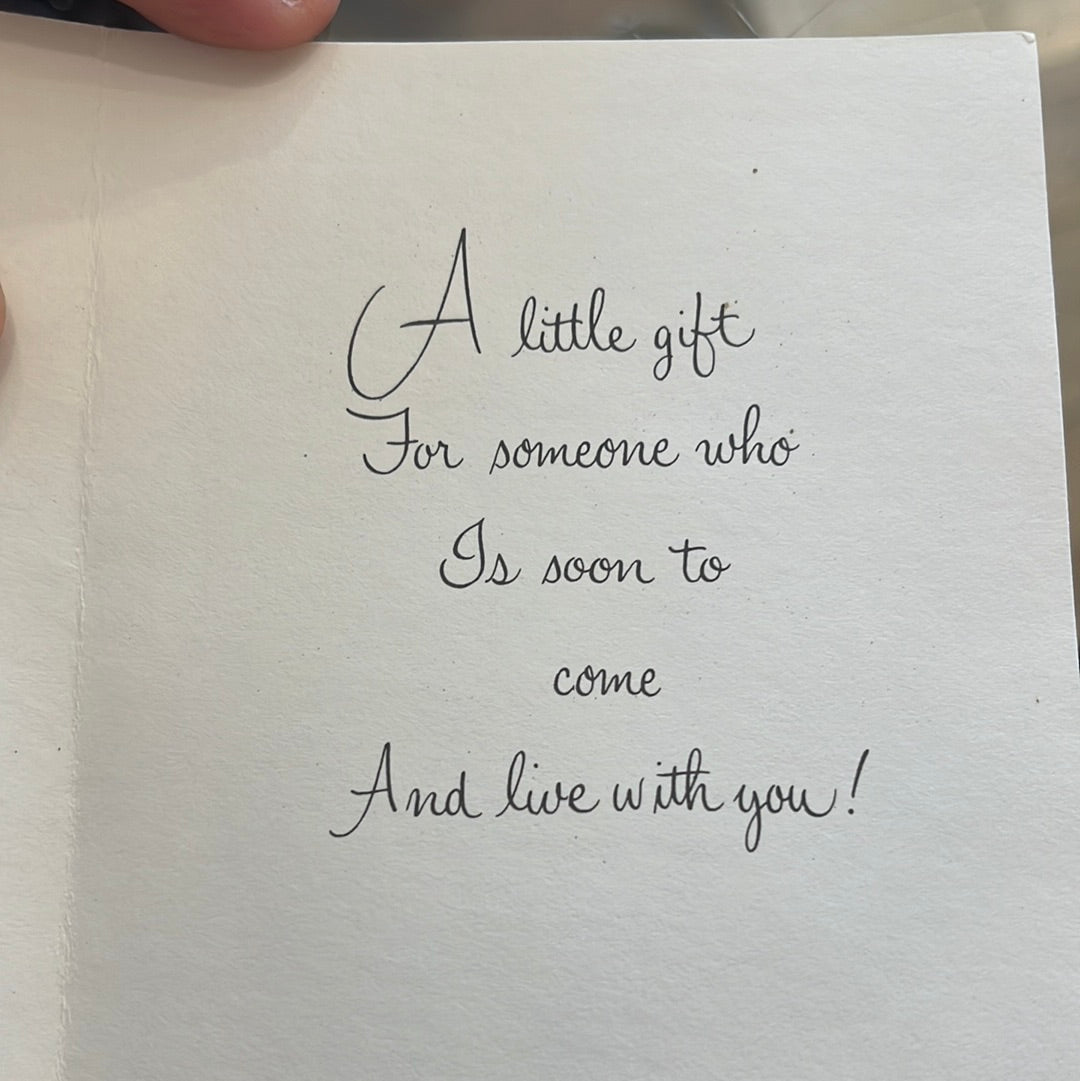 A little gift
For someone who
Is soon to
come
And live with you!